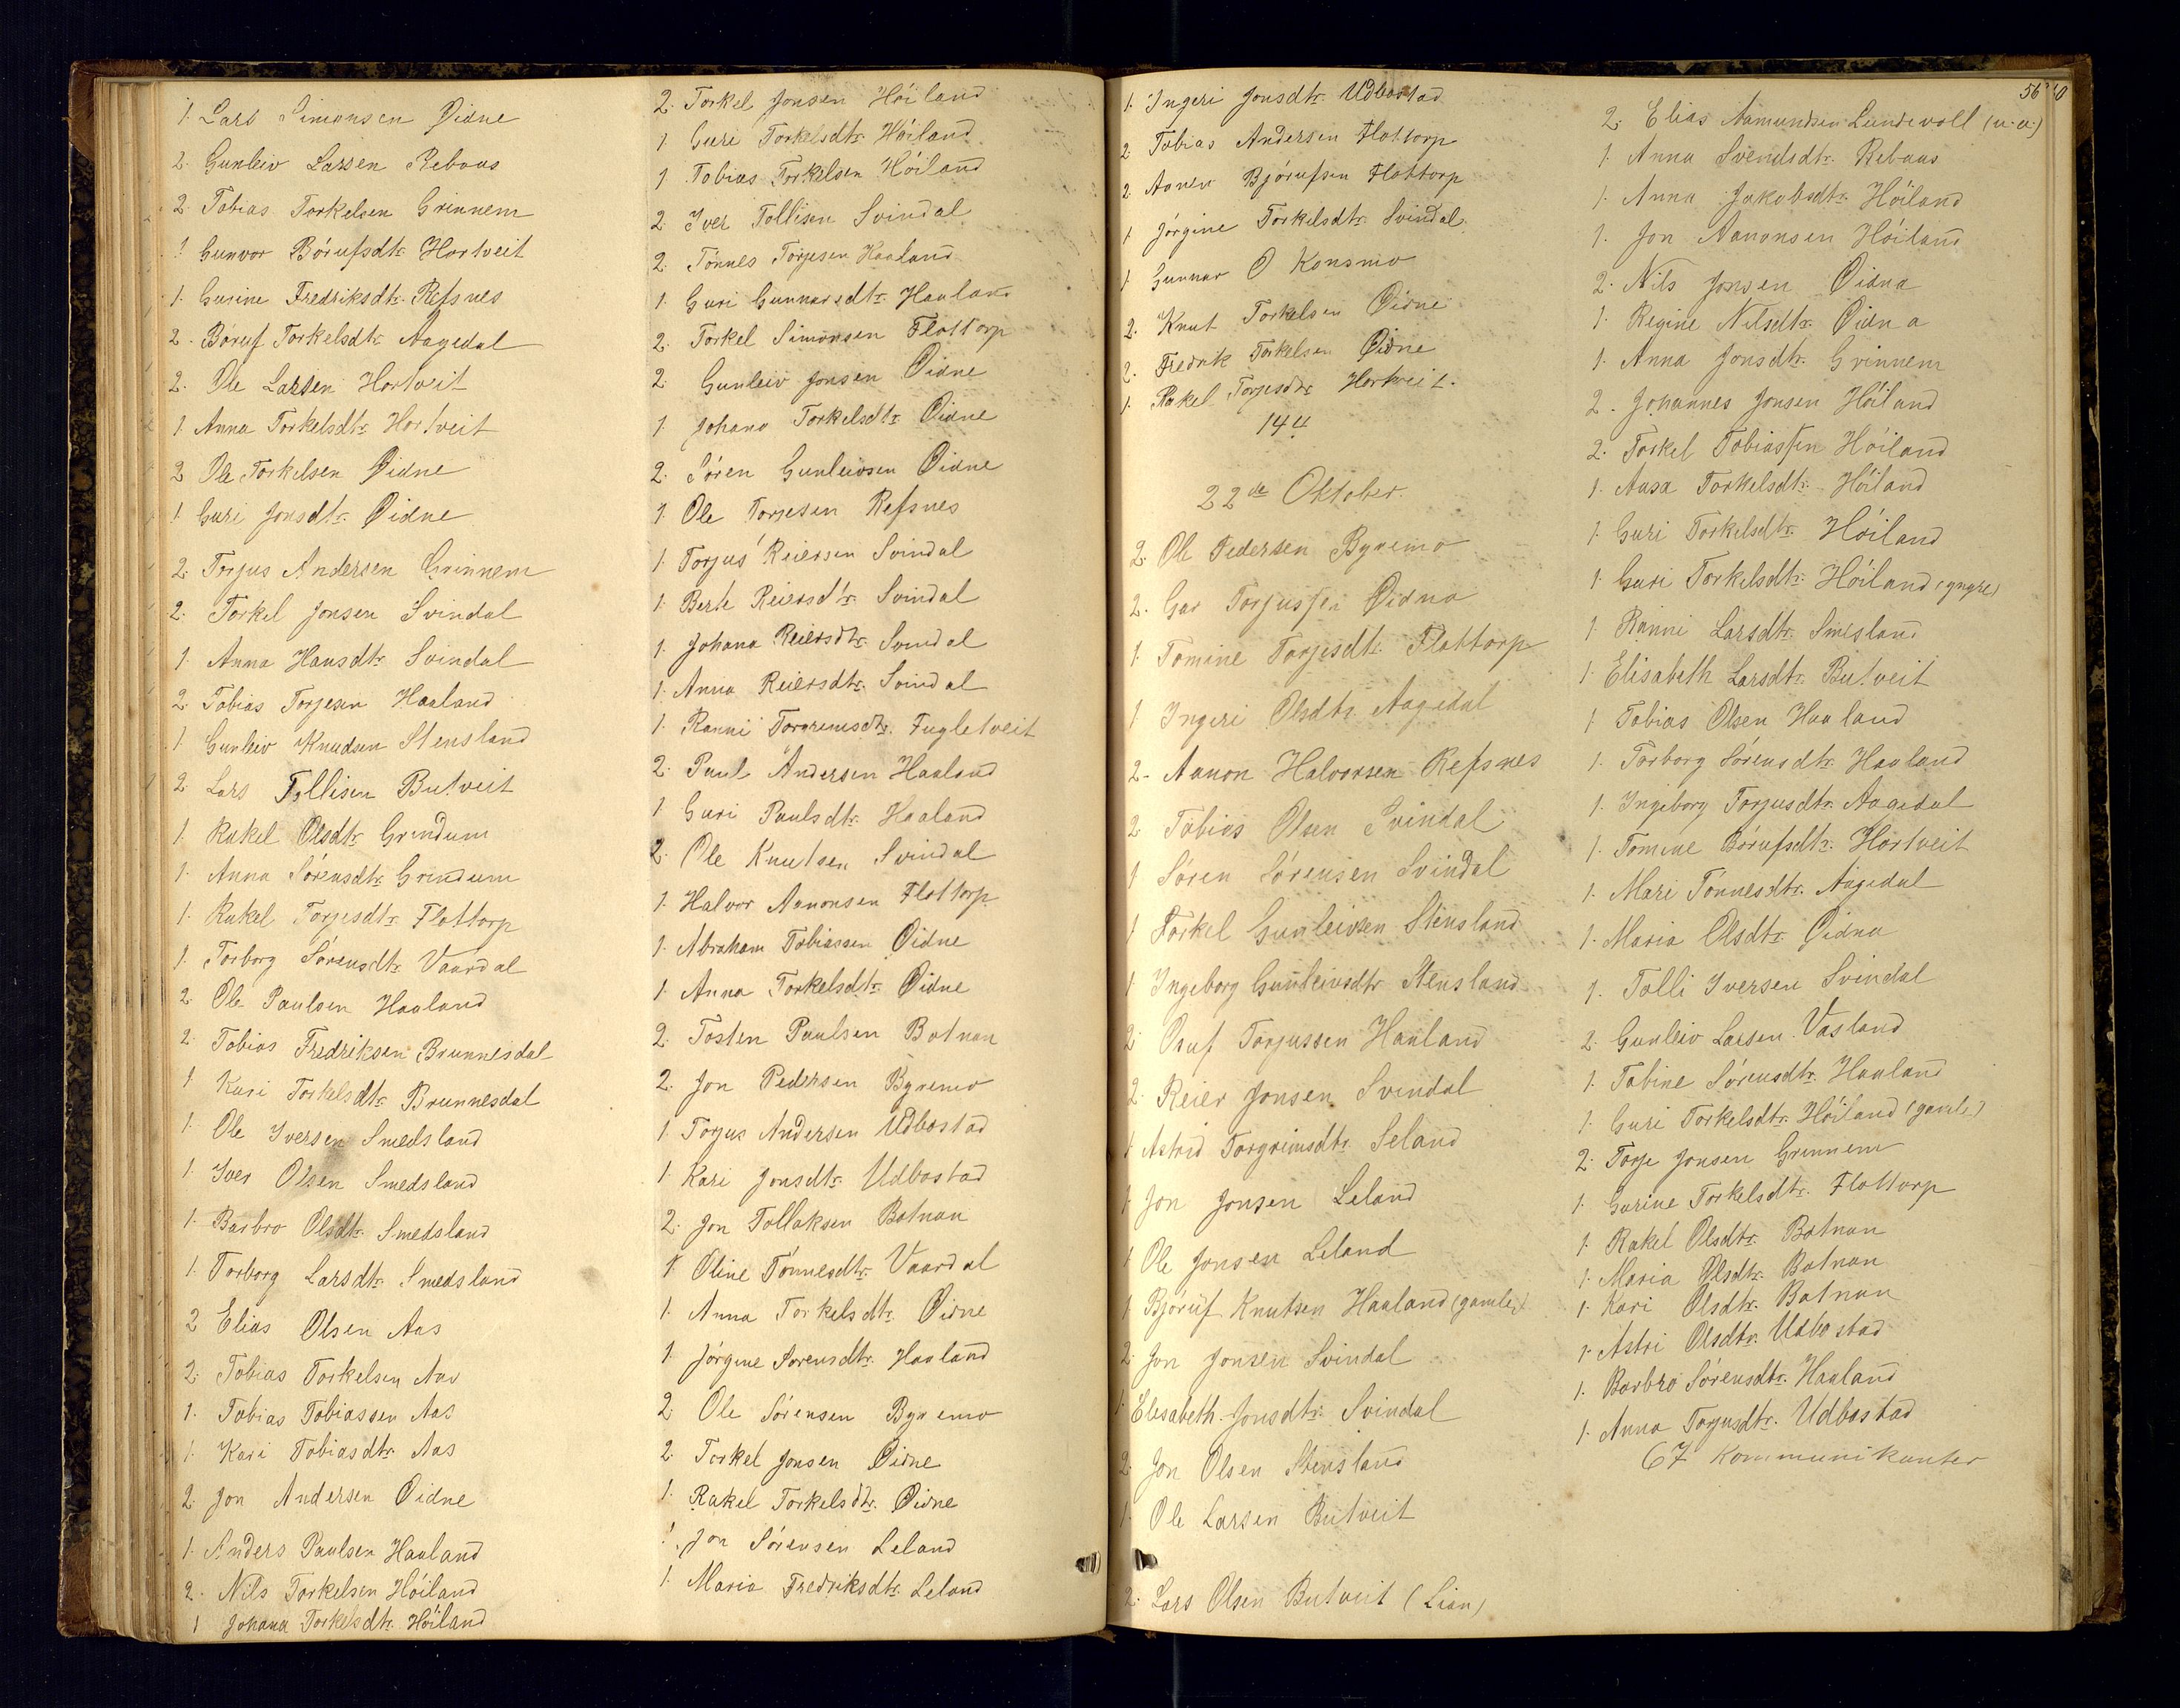 1. Lars Simonsen Øidne
2. Gunleiv Larsen Rebaas
2. Tobias Torkelsen Grinnem
1. Gunvor Bórufsdtr. Hortveit
1. Gurine Fredriksdtr. Refsnes
2. Bóruf Torkelsdtr. Aagedal
2. Ole Larsen Hortveit
1. Anna Torkelsdtr. Hortveit
2 Ole Torkelsen Øidne
1. Guri Jonsdtr. Øidne
2. Torjus Andersen Grinnem
2. Torkel Jonsen Svindal
1. Anna Hansdtr. Svindal
2 Tobias Torjesen Haaland
1. Gunleiv Knudsen Stensland
2 Lars Tollisen Butveit
1. Rakel Olsdtr. Grindum
1. Anna Sórensdtr. Grindum
1. Rakel Torjesdtr. Flottorp
1. Torborg Sórensdtr. Vaardal
2. Ole Paulsen Haaland
2. Tobias Fredriksen Brunnesdal
1 Kari Torkelsdtr. Brunnesdal
1. Ole Iversen Smedsland
1. Iver Olsen Smedsland
1. Barbro Olsdtr. Smedsland
1. Torborg Larsdtr. Smedsland
2 Elias Olsen Aas
2. Tobias Torkelsen Aas
1. Tobias Tobiassen Aas
1. Kari Tobiasdtr. Aas
2. Jon Andersen Øidne
1. Anders Paulsen Haaland
2. Nils Torkelsen Hóiland
1 Johana Torkelsdtr. Hóiland
2. Torkel Jonsen Hóiland
1 Guri Torkelsdtr. Hóiland
1 Tobias Torkelsen Hóiland
2. Iver Tollisen Svindal
2. Tónnes Torjesen Haaland
1. Guri Gunnarsdtr. Haaland
2. Torkel Simonsen Flottorp
2. Gunleiv Jonsen Øidne
1. Johana Torkelsdtr. Øidne
2. Sóren Gunleivsen Øidne
1. Ole Torjesen Refsnes
1. Torjus Reiersen Svindal
1. Berte Reiersdtr. Svindal
1. Johana Reiersdtr. Svindal
1. Anna Reiersdtr. Svindal
1. Ranni Torgrimsdtr. Fugletveit
2. Paul Andersen Haaland
1 Guri Paulsdtr. Haaland
2. Ole Knutsen Svindal
1. Halvor Aanonsen Flottorp
1. Abraham Tobiassen Øidne
1. Anna Torkelsdtr. Øidne
2. Tosten Paulsen Botnan
2. Jon Pedersen Bynemo
1. Torjus Andersen Udbostad
1. Kari Jonsdtr. Udbostad
2. Jon Tollaksen Botnan
1. Oline Tónnesdtr. Vaardal
1. Anna Torkelsdtr. Øidne
1. Jórgine Sorensdtr. Haaland
2 Ole Sórensen Bynemo
2. Torkel Jonsen Øidne
1. Rakel Torkelsdtr. Øidne
1. Jon Sórensen Leland
1. Maria Fredriksdtr. Leland
1. Ingeri Jonsdtr. Udbostad
2. Tobias Andersen Flottorp
2. Aanen Bjórufsen Flottorp
1 Jórgine Torkelsdtr. Svindal
1. Gunnar O Konsmo
2. Knut Torkelsen Øidne
2. Fredrik Torkelsen Øidne
1. Rakel Torjesdtr. Hortveit.
144
22de Oktober.
2. Ole Pedersen Bynemo
2. Gar Torjussen Øidna
1. Tomine Torjesdtr. Flottorp
1 Ingeri Olsdtr. Aagedal
2. Aanon Halvorsen Refsnes
2 Tobias Olsen Svindal
1 Sóren Sórensen Svindal
1 Torkel Gunleivsen Stensland
1 Ingeborg Gunleivsdtr Stensland
2 Oruf Torjussen Haaland
2. Reier Jonsen Svindal
1 Astrid Torgrimsdtr. Seland
1 Jon Jonsen Leland
1 Ole Jonsen Leland
1 Bjóruf Knutsen Haaland (gamle)
2. Jon Jonsen Svindal
1. Elisabeth Jonsdtr. Svindal
2. Jon Olsen Stensland
1. Ole Larsen Butveit
2. Lars Olsen Butveit (Lian)
56 40
2. Elias Aamundsen Lundevoll (u.a.)
1. Anna Svendsdtr. Rebaas
1. Anna Jakobsdtr. Hóiland
1. Jon Aanonsen Hóiland
2. Nils Jonsen Øidna
1. Regine Nilsdtr. Øidna
1. Anna Jonsdtr. Grinnem
2. Johannes Jonsen Hóiland
2. Torkel Tobiassen Hóiland
1. Aasa Torkelsdtr. Hóiland
1. Guri Torkelsdtr. Hóiland
1. Guri Torkelsdtr. Hóiland (yngre)
1 Ranni Larsdtr. Smesland
1. Elisabeth Larsdtr. Butveit
1 Tobias Olsen Haaland
1. Torborg Sórensdtr. Haaland
1. Ingeborg Torjusdtr. Aagedal
1. Tomine Bórufsdtr. Hortveit
1. Mari Tónnesdtr. Aagedal
1. Maria Olsdtr. Øidna
1. Tolli Iversen Svindal
2. Gunleiv Larsen Vasland
1. Tobine Sórensdtr. Haaland
1. Guri Torkelsdtr. Hóiland (gamle)
2. Torje Jonsen Grinnem
1. Gurine Torkelsdtr. Flottorp
1. Rakel Olsdtr. Botnan
1. Maria Olsdtr. Botnan
1. Kari Olsdtr. Botnan
1. Astri Olsdtr. Udbostad
1. Barbro Sórensdtr. Haaland
1. Anna Torjusdtr. Udbostad
67 Kommunikanter